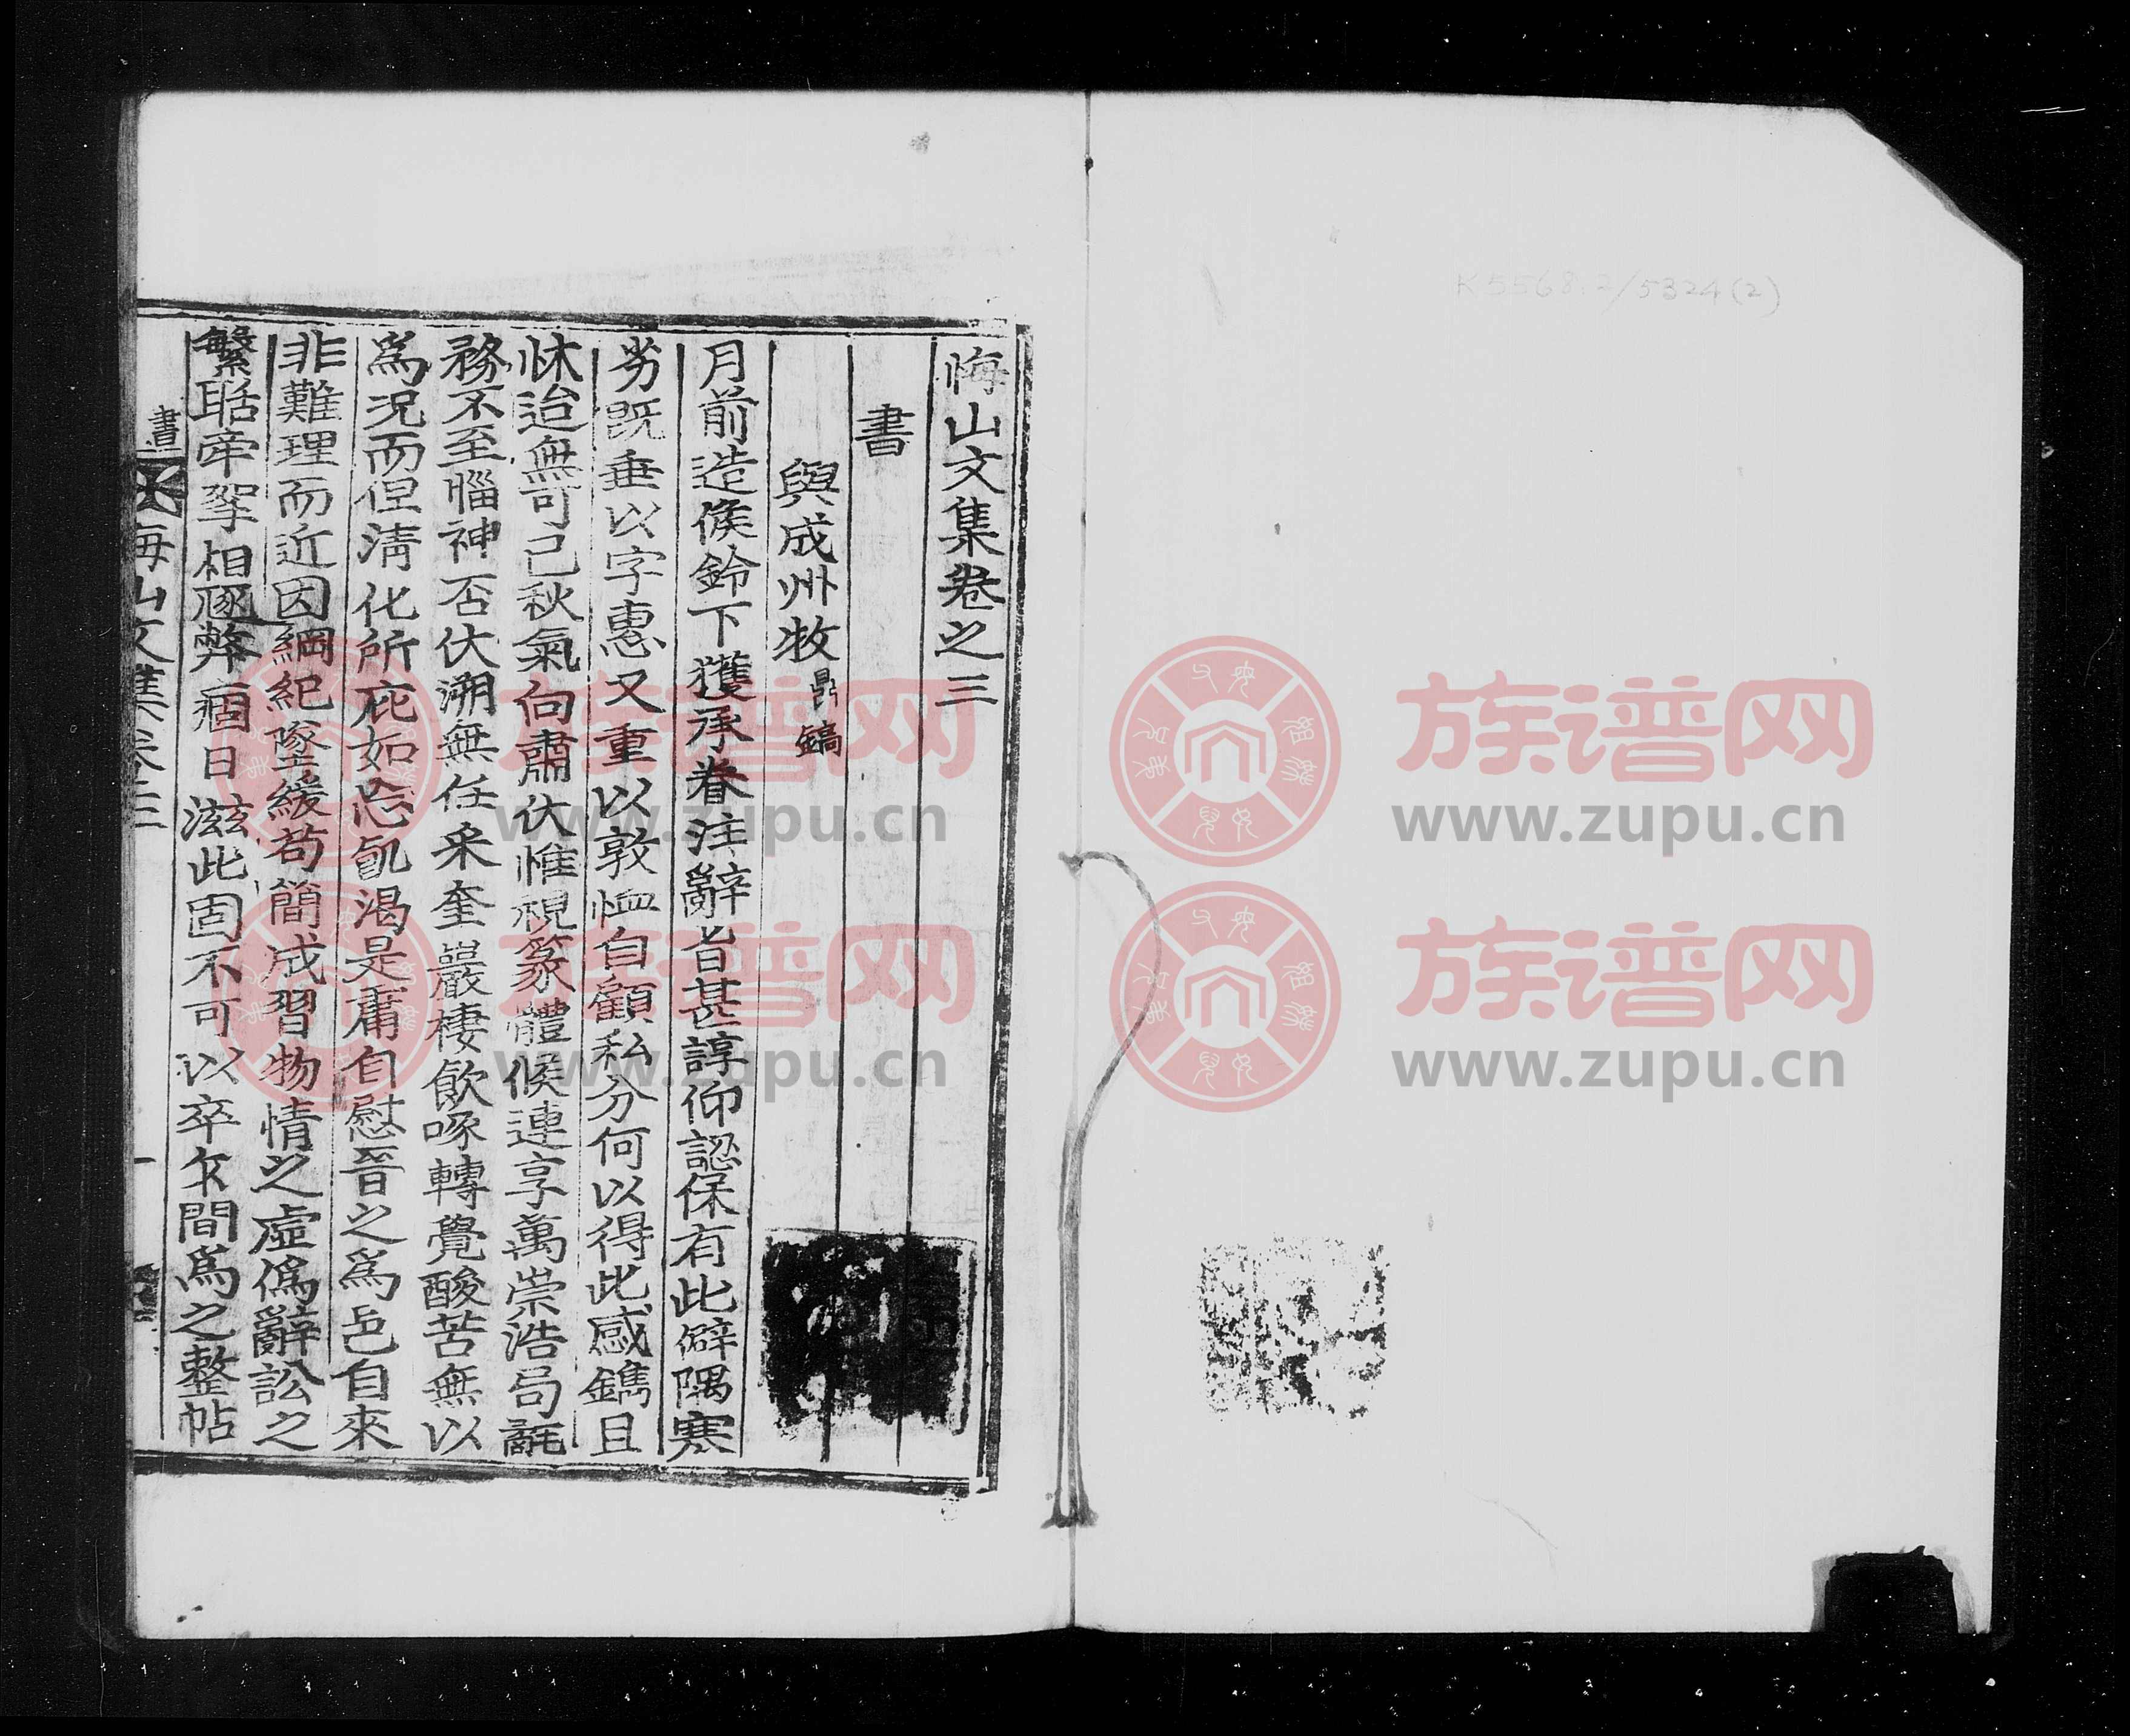 K5568.2/5324(2)
悔山文集卷之三
書
與成州牧 鼎鎬
月前造候鈴下獲承眷注辭旨甚諄仰認保有此僻隅寒
劣既垂以字惠又重以敦恤自顧私分何以得此感鐫且
怵迨無可己秋氣向肅伏惟視篆體候連享萬崇浩局氄
務不至惱神否伏溯無任釆奎巖棲飲啄轉覺酸苦無以
爲况而但淸化所庇如忘飢渴是庸自慰晉之爲邑自來
非難理而近因綱紀墜緩苟簡成習物情之虛僞辭訟之
繁聒牽挐相逐弊痼日滋此固不可以卒乍間爲之整帖
書
悔山文集卷三
一
族谱网
www.zupu.cn
族谱网
www.zupu.cn
族谱网
www.zupu.cn
族谱网
www.zupu.cn